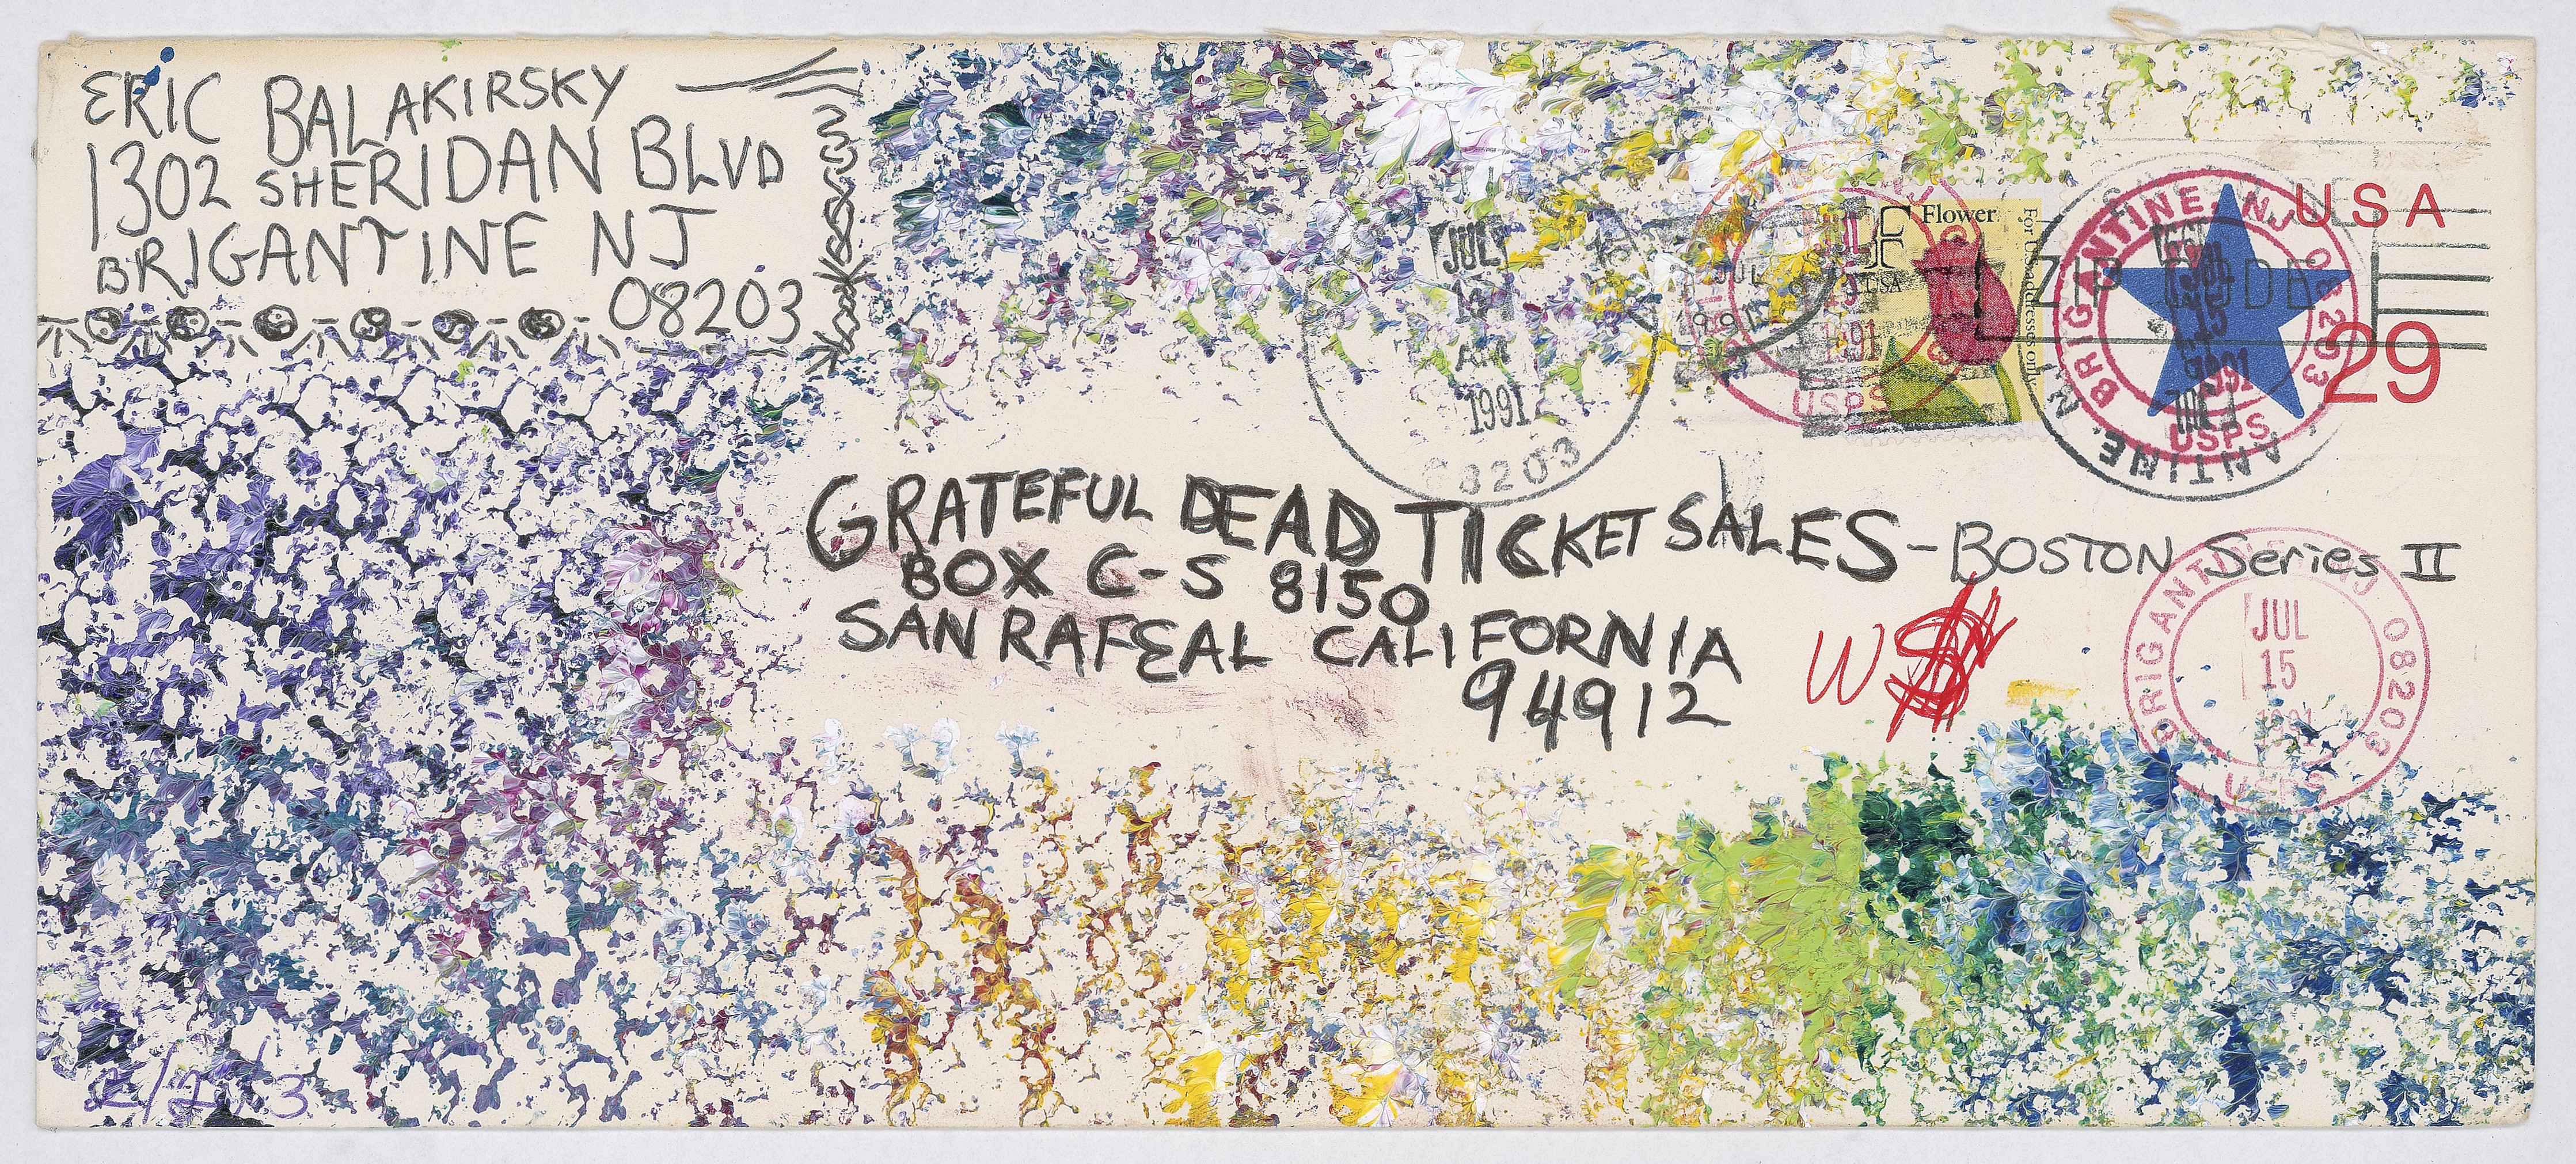 ERIC BALAKIRSKY
1302 SHERIDAN BLVD
BRIGANTINE NJ
08203
JUL
AM
1991
08203
JUL
1991
USPS
F Flower
USA
For U.S. addresses only
ZIP CODE
BRIGANTINE, NJ 08203
JUL
15
1991
USPS
USA
29
GRATEFUL DEAD TICKET SALES - BOSTON Series II
BOX C-S 8150
SAN RAFEAL CALIFORNIA
94912
W$
BRIGANTINE, NJ 08203
JUL
15
1991
USPS